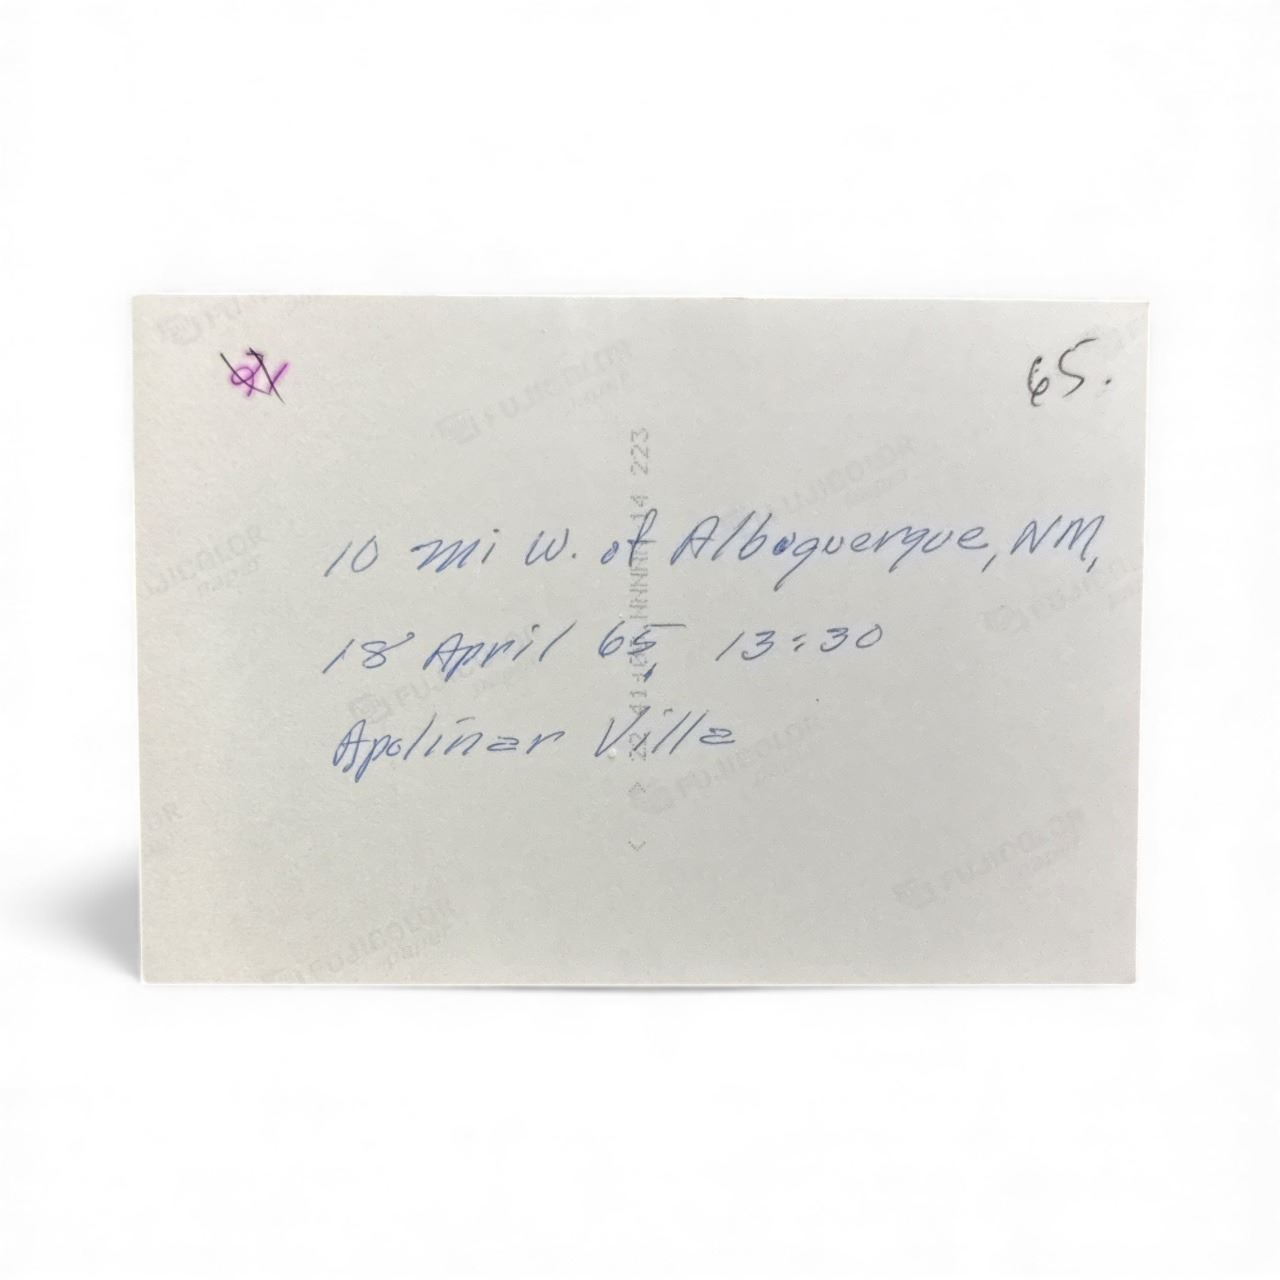 65.
10 mi W. of Albuquerque, NM,
18 April 65, 13:30
Apolinar Villa
FUJICOLOR
Paper